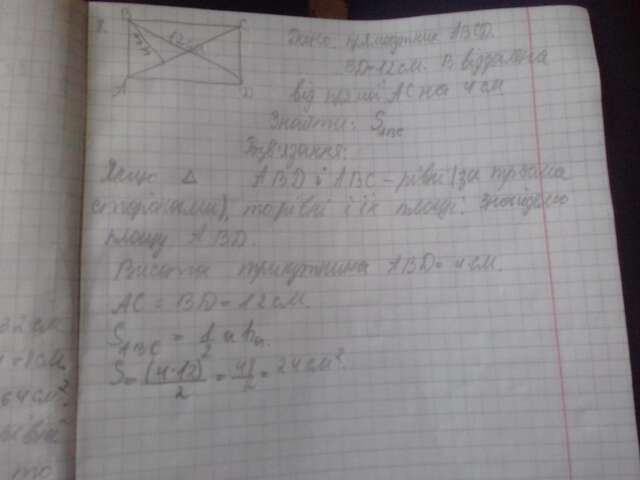 B
C
12см
A
D
Дано прямокутник ABCD.
BD=12см. В віддалена
від прямої AC на 4см
Знайти: S ABC
Розв'язання:
Якщо △ ABD і ABC - рівні (за трьома
сторонами), то рівні і їх площі. Знайдемо
площу ABD.
Висота трикутника ABD = 4см.
AC = BD = 12см.
S ABC = 1/2 a hₐ.
S = (4·12)/2 = 48/2 = 24см².
32см
64см²
рівні
то